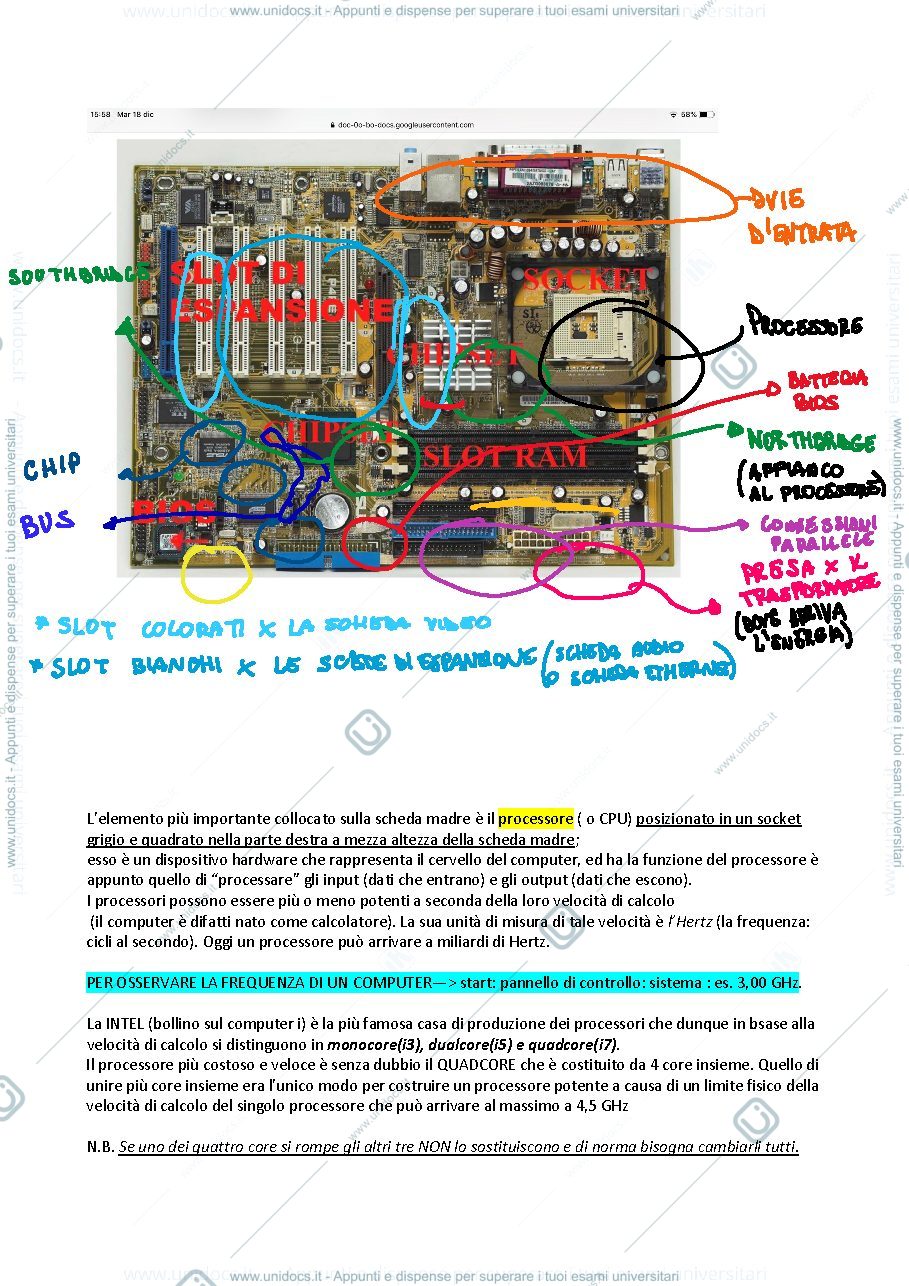 www.unidocs.it - Appunti e dispense per superare i tuoi esami universitari
15:58 Mar 18 dic
58%
doc-0o-bo-docs.googleusercontent.com
DVIE
D'ENTRATA
SOUTHBRIDGE
SLOT DI
ESPANSIONE
SOCKET
PROCESSORE
CHIPSET
BATTERIA
BIOS
NORTHBRIDGE
(APPIANCO
AL PROCESSORE)
CHIPSET
SLOT RAM
CHIP
BUS
BIOS
CONNESSIONI
PARALLELE
PRESA X IL
TRASFORMATORE
(DOVE ARRIVA
L'ENERGIA)
* SLOT COLORATI X LA SCHEDA VIDEO
* SLOT BIANCHI X LE SCHEDE DI ESPANSIONE (SCHEDA AUDIO
O SCHEDA ETHERNET)
L'elemento più importante collocato sulla scheda madre è il processore ( o CPU) posizionato in un socket
grigio e quadrato nella parte destra a mezza altezza della scheda madre;
esso è un dispositivo hardware che rappresenta il cervello del computer, ed ha la funzione del processore è
appunto quello di “processare” gli input (dati che entrano) e gli output (dati che escono).
I processori possono essere più o meno potenti a seconda della loro velocità di calcolo
(il computer è difatti nato come calcolatore). La sua unità di misura di tale velocità è l'Hertz (la frequenza:
cicli al secondo). Oggi un processore può arrivare a miliardi di Hertz.
PER OSSERVARE LA FREQUENZA DI UN COMPUTER—> start: pannello di controllo: sistema : es. 3,00 GHz.
La INTEL (bollino sul computer i) è la più famosa casa di produzione dei processori che dunque in bsase alla
velocità di calcolo si distinguono in monocore(i3), dualcore(i5) e quadcore(i7).
Il processore più costoso e veloce è senza dubbio il QUADCORE che è costituito da 4 core insieme. Quello di
unire più core insieme era l'unico modo per costruire un processore potente a causa di un limite fisico della
velocità di calcolo del singolo processore che può arrivare al massimo a 4,5 GHz
N.B. Se uno dei quattro core si rompe gli altri tre NON lo sostituiscono e di norma bisogna cambiarli tutti.
www.unidocs.it - Appunti e dispense per superare i tuoi esami universitari